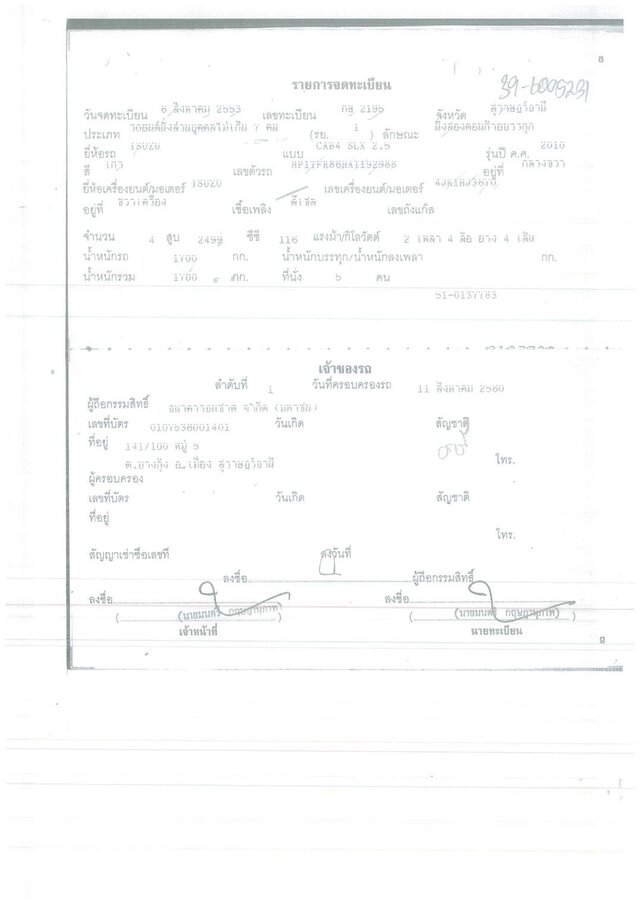 8
รายการจดทะเบียน
39-6005231
วันจดทะเบียน 6 สิงหาคม 2553 เลขทะเบียน กฉ 2195 จังหวัด สุราษฎร์ธานี
ประเภท รถยนต์นั่งส่วนบุคคลไม่เกิน 7 คน (รย. 1 ) ลักษณะ นั่งสองตอนท้ายบรรทุก
ยี่ห้อรถ ISUZU แบบ CAB4 SLX 2.5 รุ่นปี ค.ศ. 2010
สี เทา เลขตัวรถ อยู่ที่ กลางขวา
ยี่ห้อเครื่องยนต์/มอเตอร์ ISUZU เลขเครื่องยนต์/มอเตอร์
อยู่ที่ ขวาเครื่อง เชื้อเพลิง ดีเซล เลขถังแก๊ส
จำนวน 4 สูบ 2499 ซีซี 116 แรงม้า/กิโลวัตต์ 2 เพลา 4 ล้อ ยาง 4 เส้น
น้ำหนักรถ 1700 กก. น้ำหนักบรรทุก/น้ำหนักลงเพลา กก.
น้ำหนักรวม 1700 กก. ที่นั่ง 5 คน
51-0137783
เจ้าของรถ
ลำดับที่ 1 วันที่ครอบครองรถ 11 สิงหาคม 2560
ผู้ถือกรรมสิทธิ์ ธนาคารธนชาต จำกัด (มหาชน)
เลขที่บัตร 0107536001401 วันเกิด สัญชาติ
ที่อยู่ 141/100 หมู่ 5
ต.บางกุ้ง อ.เมือง สุราษฎร์ธานี โทร.
ผู้ครอบครอง
เลขที่บัตร วันเกิด สัญชาติ
ที่อยู่
โทร.
สัญญาเช่าซื้อเลขที่ ลงวันที่
ลงชื่อ ผู้ถือกรรมสิทธิ์
ลงชื่อ ลงชื่อ
(นายมนตรี กฤษฎานุภาพ) (นายมนตรี กฤษฎานุภาพ)
เจ้าหน้าที่ นายทะเบียน
9